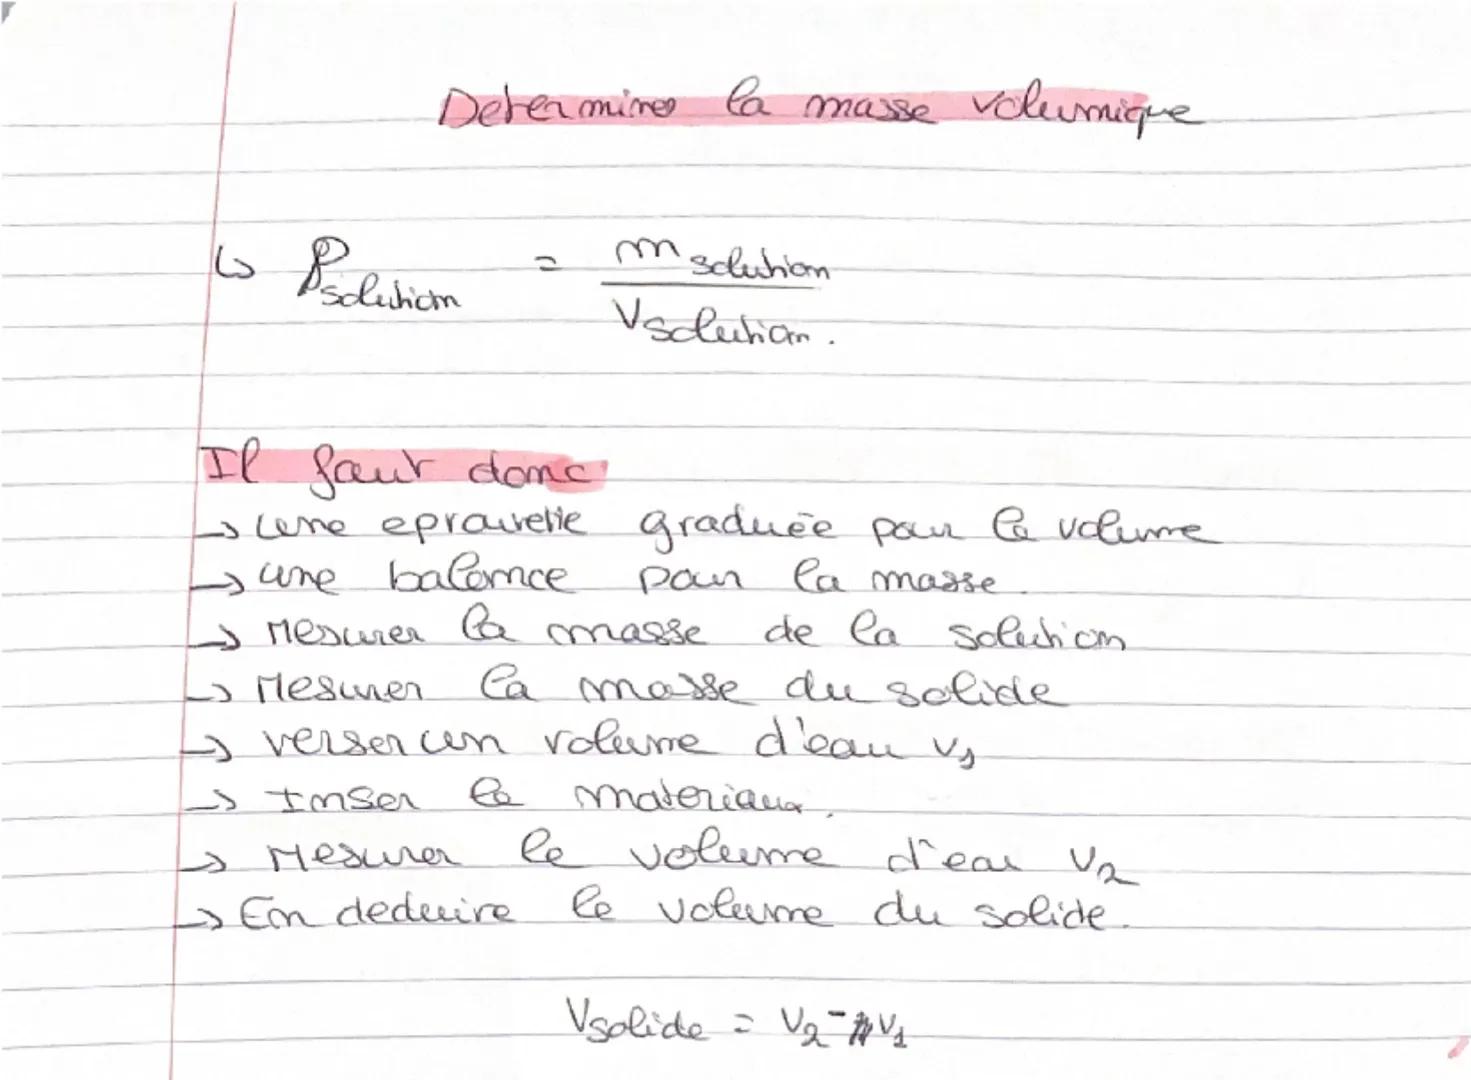 Determiner la masse volumique
↳ ρsolution = m solution / Vsolution.
Il faut donc
→ une eprouvette graduée pour le volume
→ une balance pour la masse.
→ Mesurer la masse de la solution
→ Mesurer la masse du solide
→ verser un volume d'eau v1
→ Inser le materiaux.
→ Mesurer le volume d'eau V2
→ En deduire le volume du solide.
Vsolide = V2 - V1